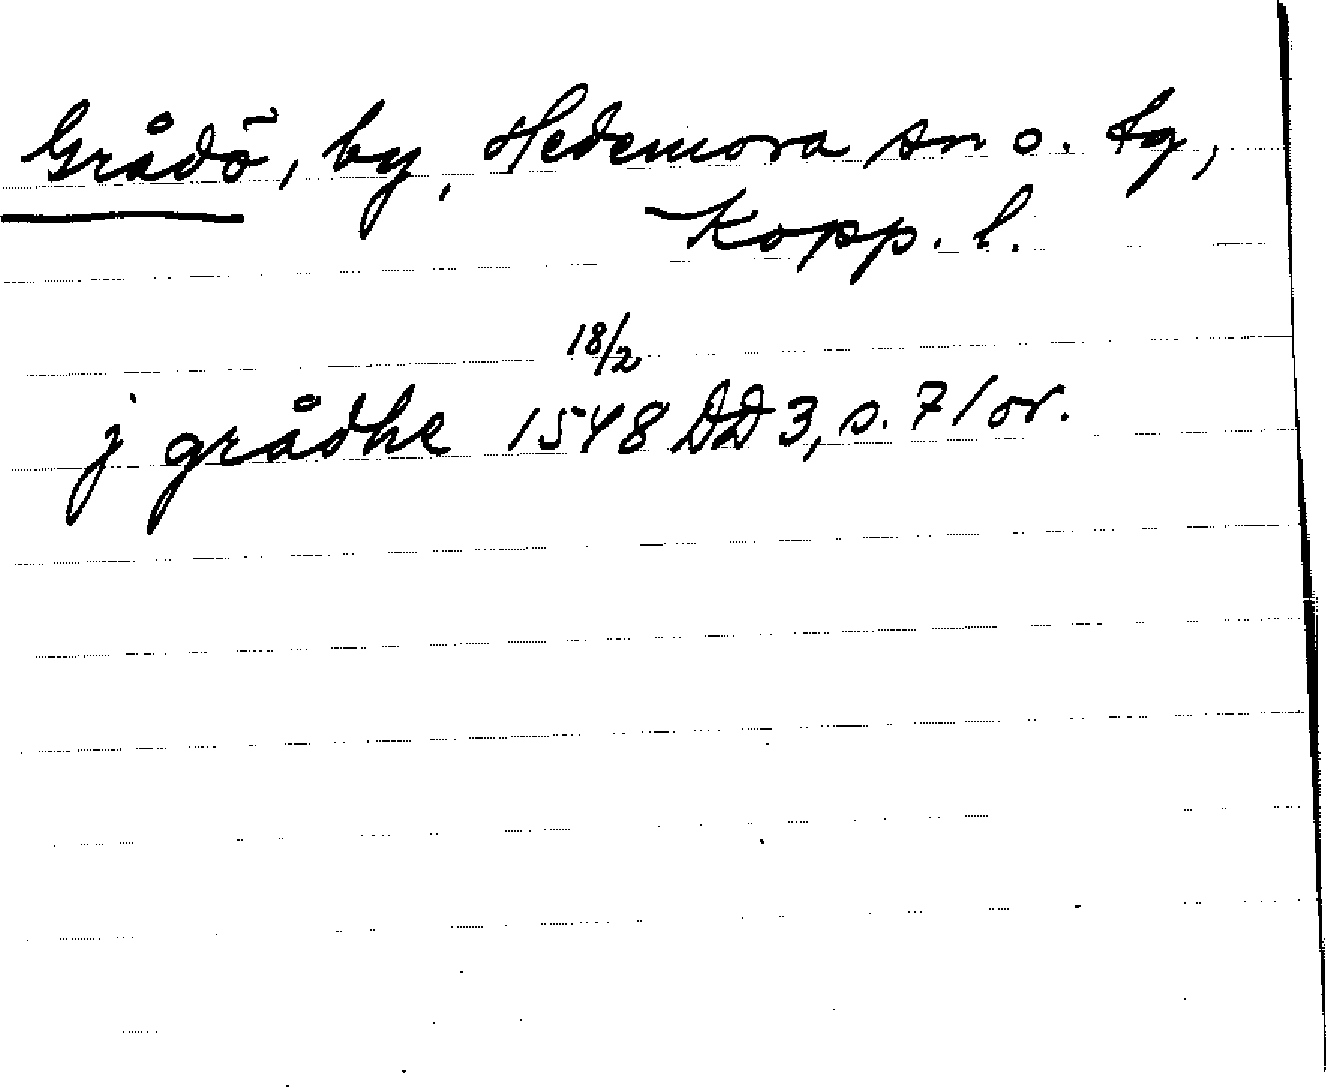 Grådö, by, Hedemora sn o. tg,
Kopp. l.
18/2
j grådhe 1548 DD 3, s. 71 or.